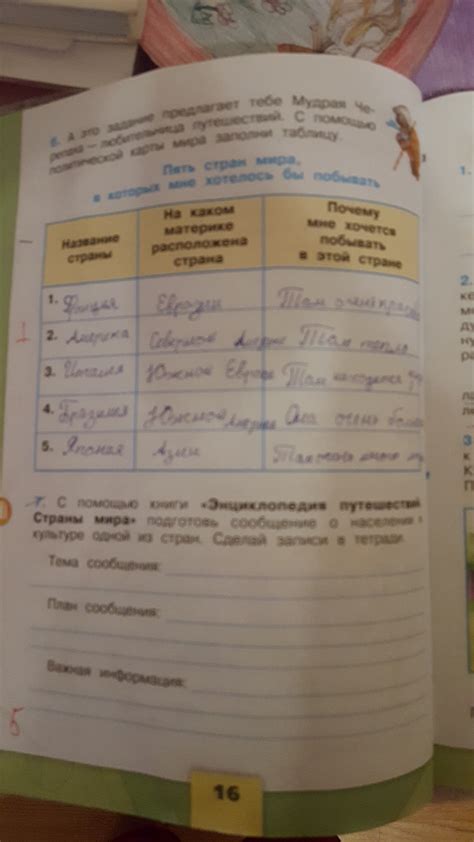 6. А это задание предлагает тебе Мудрая Че-
репаха – любительница путешествий. С помощью
политической карты мира заполни таблицу.
Пять стран мира,
в которых мне хотелось бы побывать
Название страны
На каком материке расположена страна
Почему мне хочется побывать в этой стране
1. Греция Евразии Там очень
2. Америка Северной Америке Там тепло
3. Италия Южной Там находится
4. Бразилия Южной Америке Она очень
5. Япония Азии Там очень много
7. С помощью книги «Энциклопедия путешествий.
Страны мира» подготовь сообщение о населении и
культуре одной из стран. Сделай записи в тетради.
Тема сообщения:
План сообщения:
Важная информация:
5
16
1.
2.
3